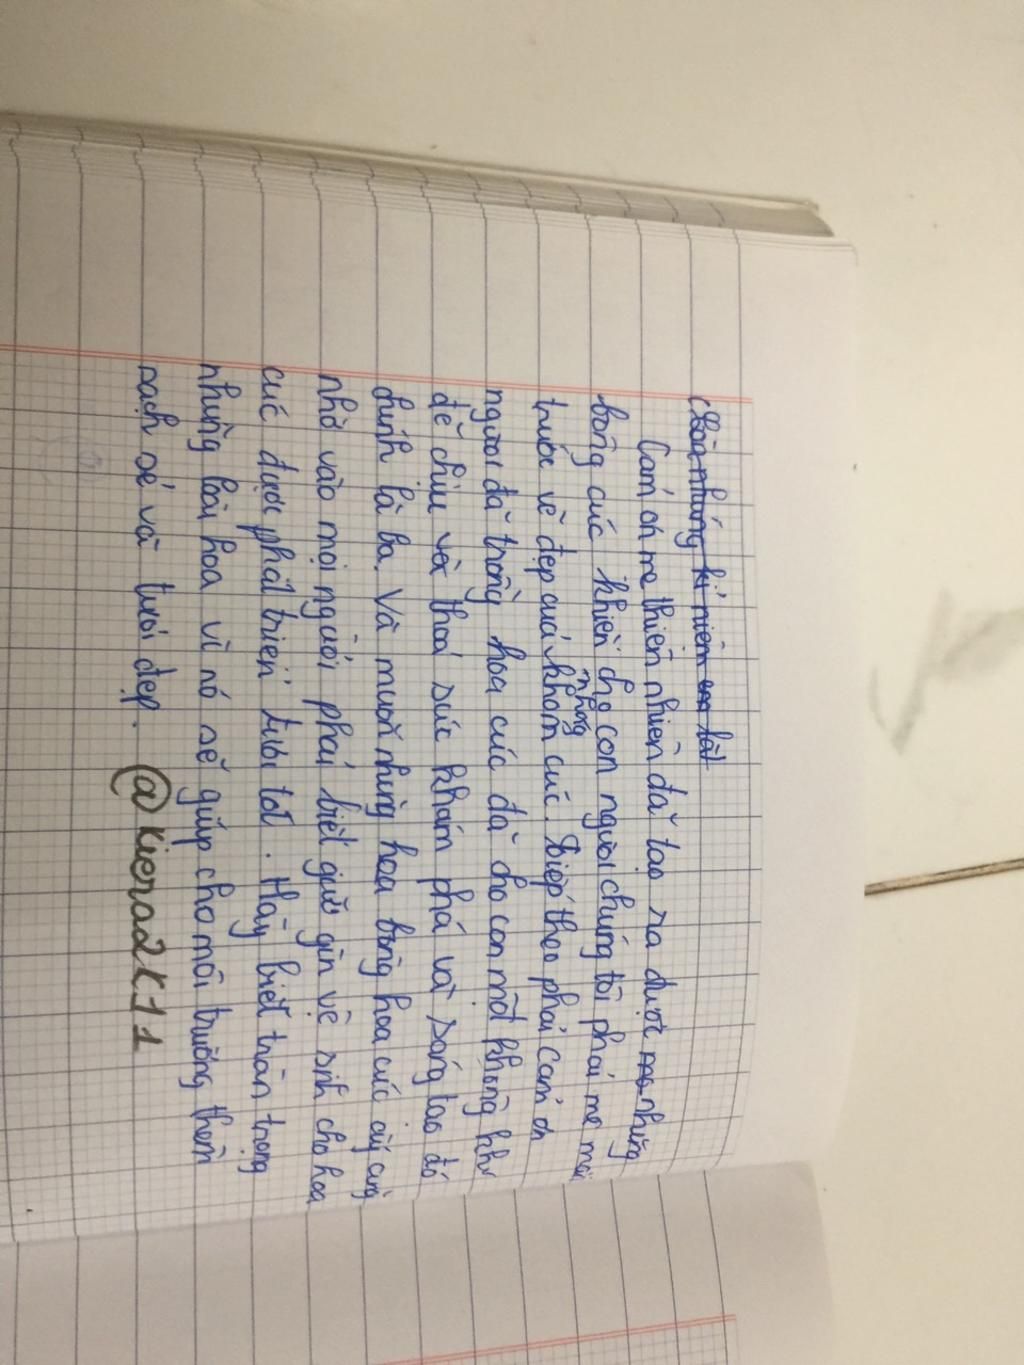 những kỉ niệm em
Cảm ơn mẹ thiên nhiên đã tạo ra được những
bông cúc khiến cho con người chúng tôi phải mê mải
trước vẻ đẹp của khóm cúc. Tiếp theo phải cảm ơn
những
người đã trồng hoa cúc đã cho con một không khí
dễ chịu và thoả sức khám phá và sáng tạo đó
chính là ba. Và muốn những hoa bông hoa cúc ấy cũng
nhờ vào mọi người phải biết giữ gìn vệ sinh cho hoa
cúc được phát triển tươi tốt. Hãy biết trân trọng
những loài hoa vì nó sẽ giúp cho môi trường thêm
sạch sẽ và tươi đẹp.
@kiera2k11